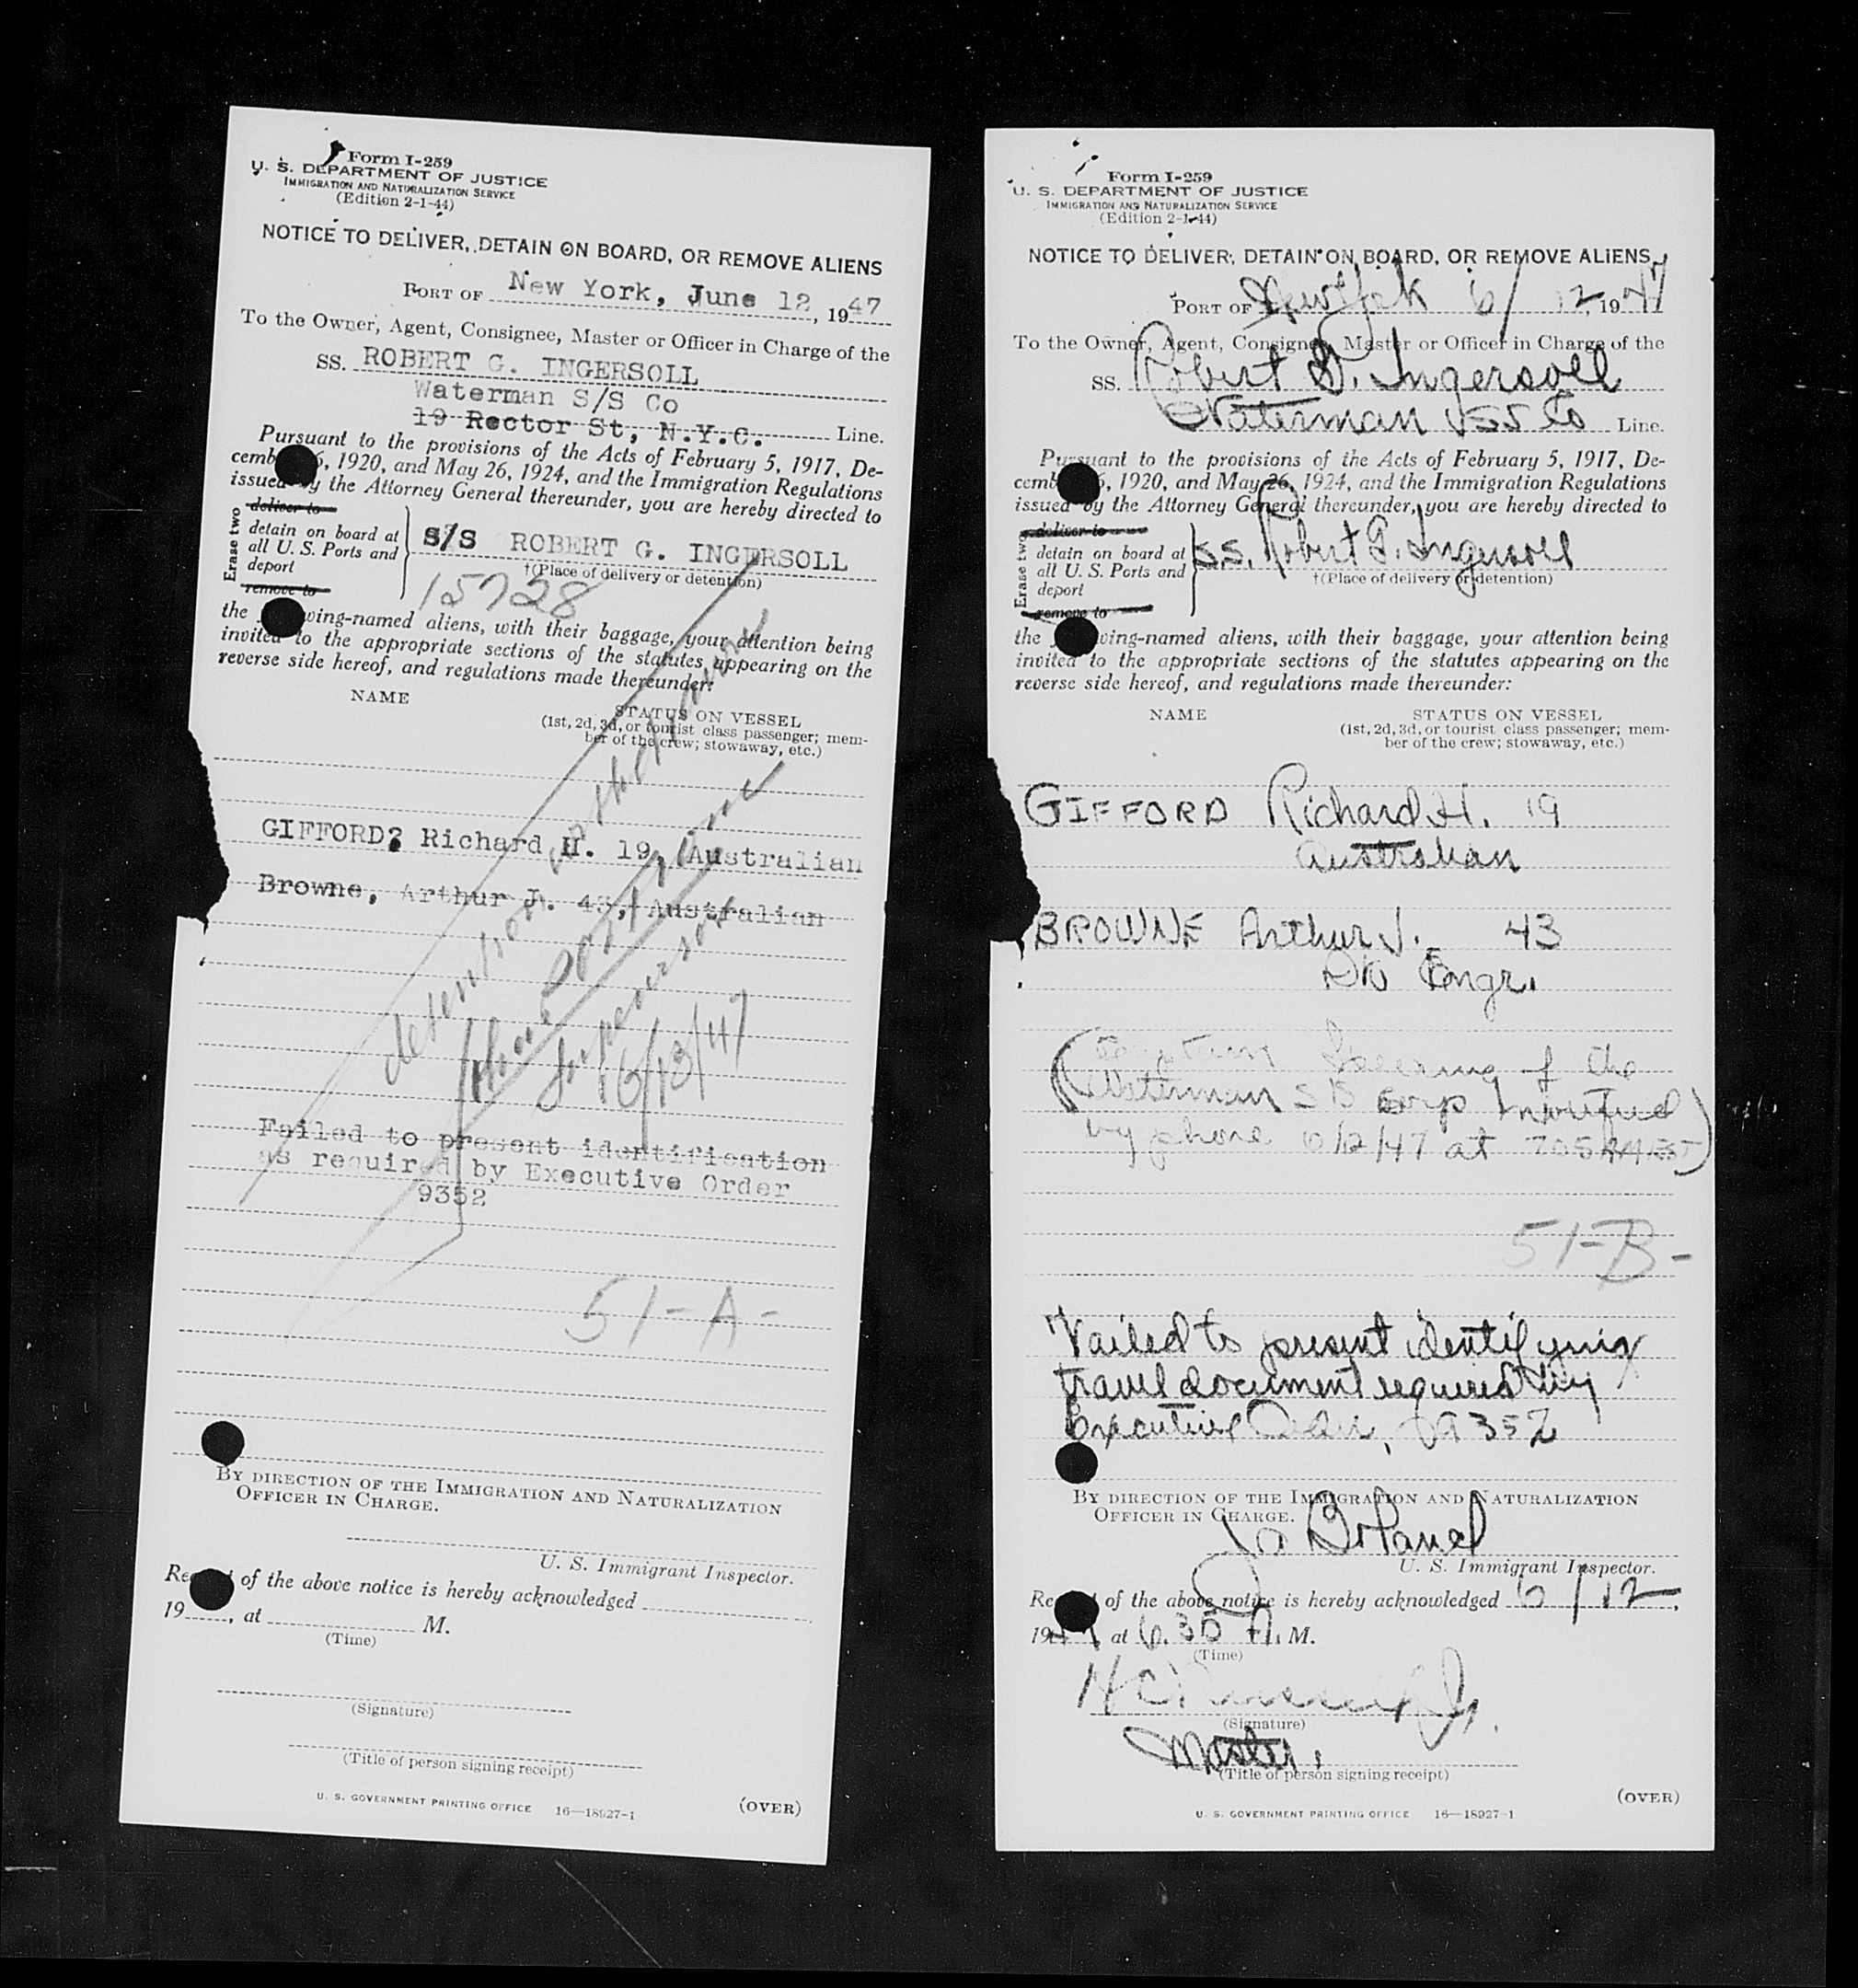 Form I-259
U. S. DEPARTMENT OF JUSTICE
IMMIGRATION AND NATURALIZATION SERVICE
(Edition 2-1-44)
NOTICE TO DELIVER, DETAIN ON BOARD, OR REMOVE ALIENS
PORT OF New York, June 12, 1947
To the Owner, Agent, Consignee, Master or Officer in Charge of the
SS. ROBERT G. INGERSOLL
Waterman S/S Co
19 Rector St, N.Y.C. Line.
Pursuant to the provisions of the Acts of February 5, 1917, De-
cemb 5, 1920, and May 26, 1924, and the Immigration Regulations
issued by the Attorney General thereunder, you are hereby directed to
Erase two
deliver to
detain on board at
all U. S. Ports and
deport
remove to
S/S ROBERT G. INGERSOLL
†(Place of delivery or detention)
15728
the wing-named aliens, with their baggage, your attention being
invited to the appropriate sections of the statutes appearing on the
reverse side hereof, and regulations made thereunder:
NAME
STATUS ON VESSEL
(1st, 2d, 3d, or tourist class passenger; mem-
ber of the crew; stowaway, etc.)
GIFFORD? Richard H. 19, Australian
Browne, Arthur J. 43, Australian
detention
6/13/47
Failed to present identification
as required by Executive Order
9352
51-A-
BY DIRECTION OF THE IMMIGRATION AND NATURALIZATION
OFFICER IN CHARGE.
U. S. Immigrant Inspector.
Re of the above notice is hereby acknowledged
19 , at M.
(Time)
(Signature)
(Title of person signing receipt)
U. S. GOVERNMENT PRINTING OFFICE 16—18927-1
(OVER)
Form I-259
U. S. DEPARTMENT OF JUSTICE
IMMIGRATION AND NATURALIZATION SERVICE
(Edition 2-1-44)
NOTICE TO DELIVER, DETAIN ON BOARD, OR REMOVE ALIENS
PORT OF New York 6/12, 1947
To the Owner, Agent, Consignee, Master or Officer in Charge of the
SS. Robert G. Ingersoll
Waterman SS Co Line.
Pursuant to the provisions of the Acts of February 5, 1917, De-
cemb 5, 1920, and May 26, 1924, and the Immigration Regulations
issued by the Attorney General thereunder, you are hereby directed to
Erase two
deliver to
detain on board at
all U. S. Ports and
deport
remove to
S.S. Robert G. Ingersoll
†(Place of delivery or detention)
the wing-named aliens, with their baggage, your attention being
invited to the appropriate sections of the statutes appearing on the
reverse side hereof, and regulations made thereunder:
NAME
STATUS ON VESSEL
(1st, 2d, 3d, or tourist class passenger; mem-
ber of the crew; stowaway, etc.)
GIFFORD Richard H. 19
Australian
BROWNE Arthur J. 43
Dk Engr.
of the
Waterman SS Corp notified
by phone 6/12/47 at 705 AM EST)
51-B-
Failed to present identifying
travel document required by
Executive Order, 9352
BY DIRECTION OF THE IMMIGRATION AND NATURALIZATION
OFFICER IN CHARGE.
U. S. Immigrant Inspector.
Re of the above notice is hereby acknowledged 6/12,
1947 at 6.30 A. M.
(Time)
(Signature)
Master.
(Title of person signing receipt)
U. S. GOVERNMENT PRINTING OFFICE 16—18927-1
(OVER)